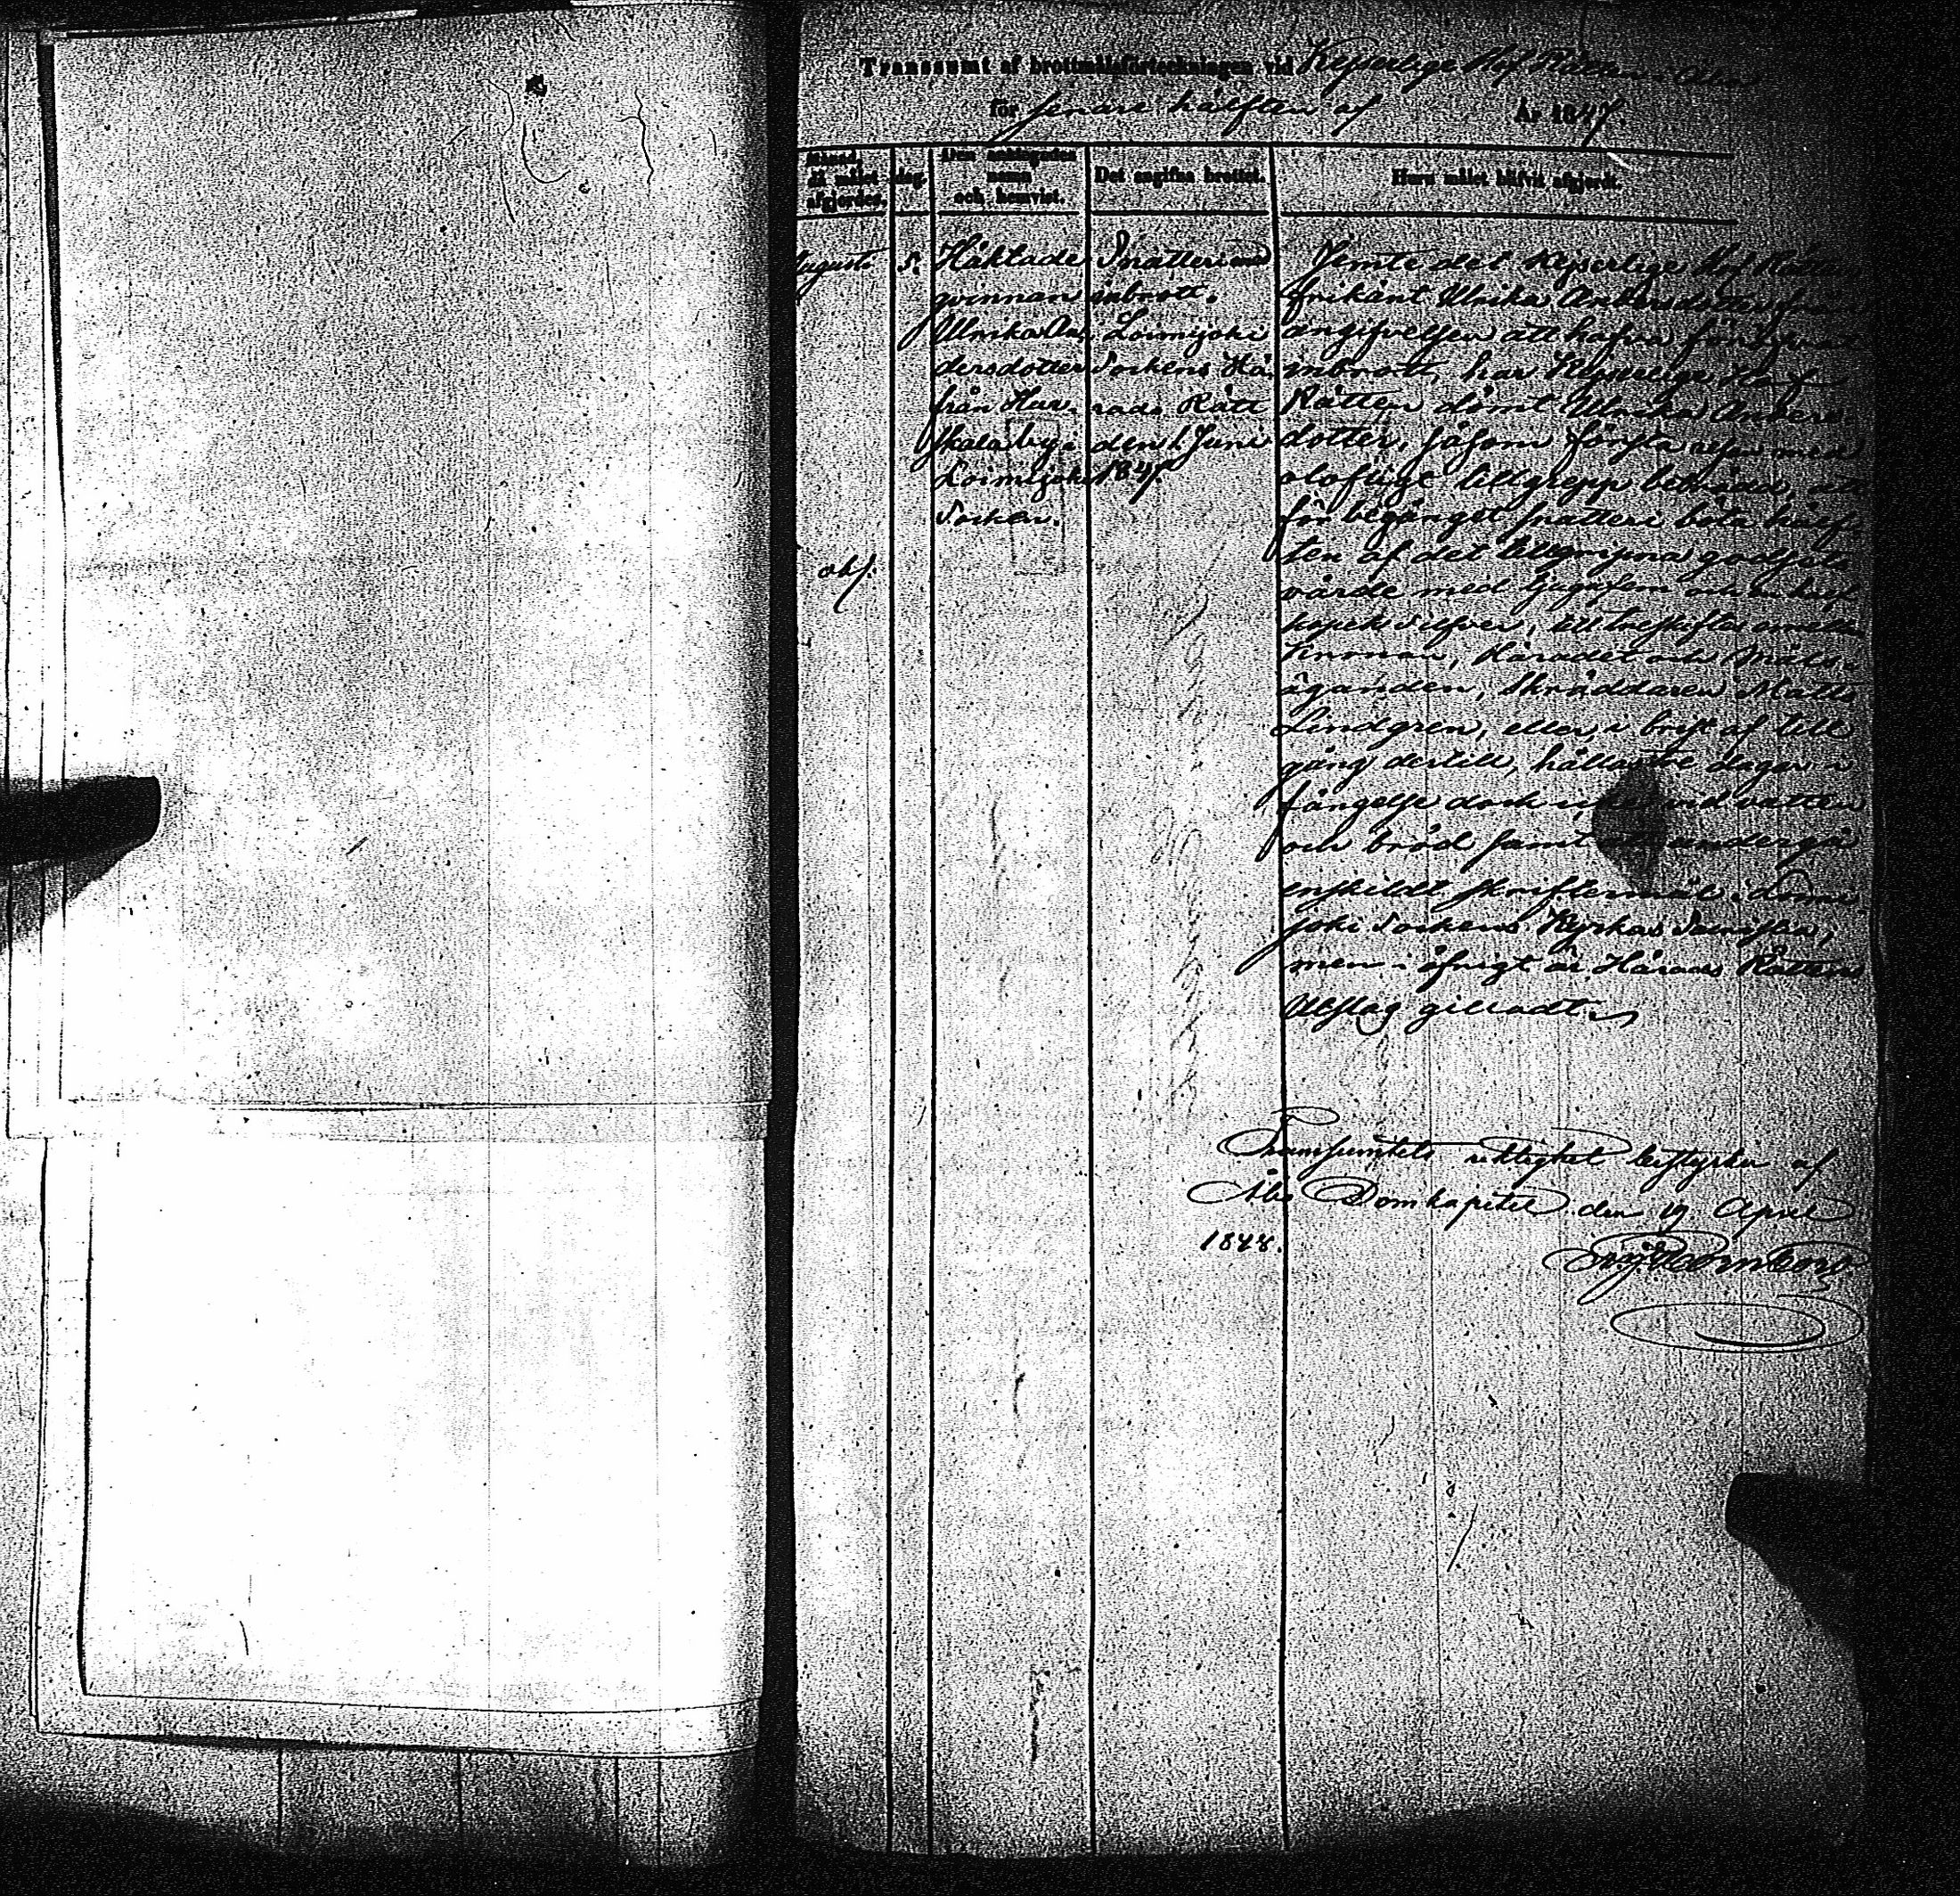 Transsumt af brottmålsförteckningen vid Kejserlige Hof Rätten i Åbo
för senare hälften af År 1847.
Månad, då målet afgjordes.
dag.
Den anklagades namn och hemvist.
Det angifna brottet.
Huru målet blifvit afgjordt.
Augusti
5.
Häktade
qvinnan
Ulrika An-
dersdotter
från Hau-
skala by i
Loimijoki
Socken.
Snatteri och
inbrott.
Loimijoki
Sockens Hä-
rads Rätt
den 1 Juni
1847.
Jemte det Kejserlige Hof Rätten
frikänt Ulrika Andersdotter från
angifvelsen att hafva föröfvat
inbrott, har Kejserlige Hof
Rätten dömt Ulrika Anders-
dotter, såsom första resan med
olofligt tillgrepp beträdd, att
för begånget snatteri böta hälf-
ten af det tillgripna godsets
värde med tjugofem och en half
kopek silfver, till treskiftes emellan
Kronan, Häradet och Måls-
äganden, Skräddaren Matts
Lindgren, eller i brist af till-
gång dertill, hållas tre dagar i
fängelse dock icke vid vatten
och bröd samt att undergå
enskildt skriftermål i Loimi-
joki Sockens Kyrkas Sacristia;
men i öfrigt är Härads Rättens
Utslag gilladt.
Transumtets riktighet bestyrker af
Åbo Domkapitel den 19 April
1848.